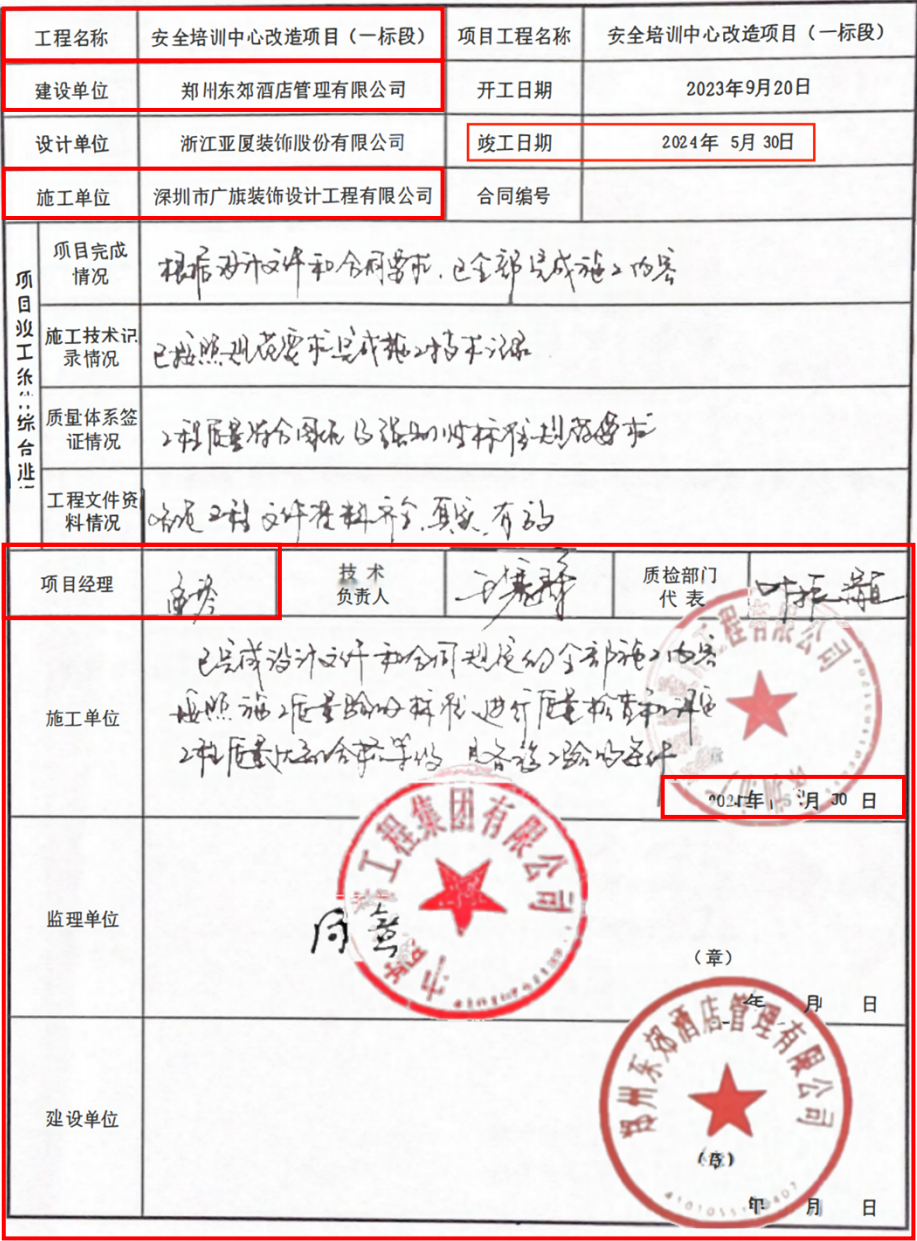 工程名称 安全培训中心改造项目（一标段） 项目工程名称 安全培训中心改造项目（一标段）
建设单位 郑州东郊酒店管理有限公司 开工日期 2023年9月20日
设计单位 浙江亚厦装饰股份有限公司 竣工日期 2024年 5月 30日
施工单位 深圳市广旗装饰设计工程有限公司 合同编号
项目竣工
综合
项目完成
情况
根据设计文件和合同要求，已全部完成施工内容
施工技术记
录情况
已按照规范要求完成施工技术记录
质量体系签
证情况
工程质量符合国家及强制性标准规范要求
工程文件资
料情况
工程文件资料齐全、真实、有效
项目经理
技 术
负责人
质检部门
代 表
叶振
施工单位
已完成设计文件和合同规定的全部施工内容
按照施工质量验收标准进行质量检查和评定
工程质量达到合格等级 具备竣工验收的条件
工程有限公司
2024年 5月 30 日
监理单位
同意
工程集团有限公司
（章）
年 月 日
建设单位
郑州东郊酒店管理有限公司
（章）
年 月 日